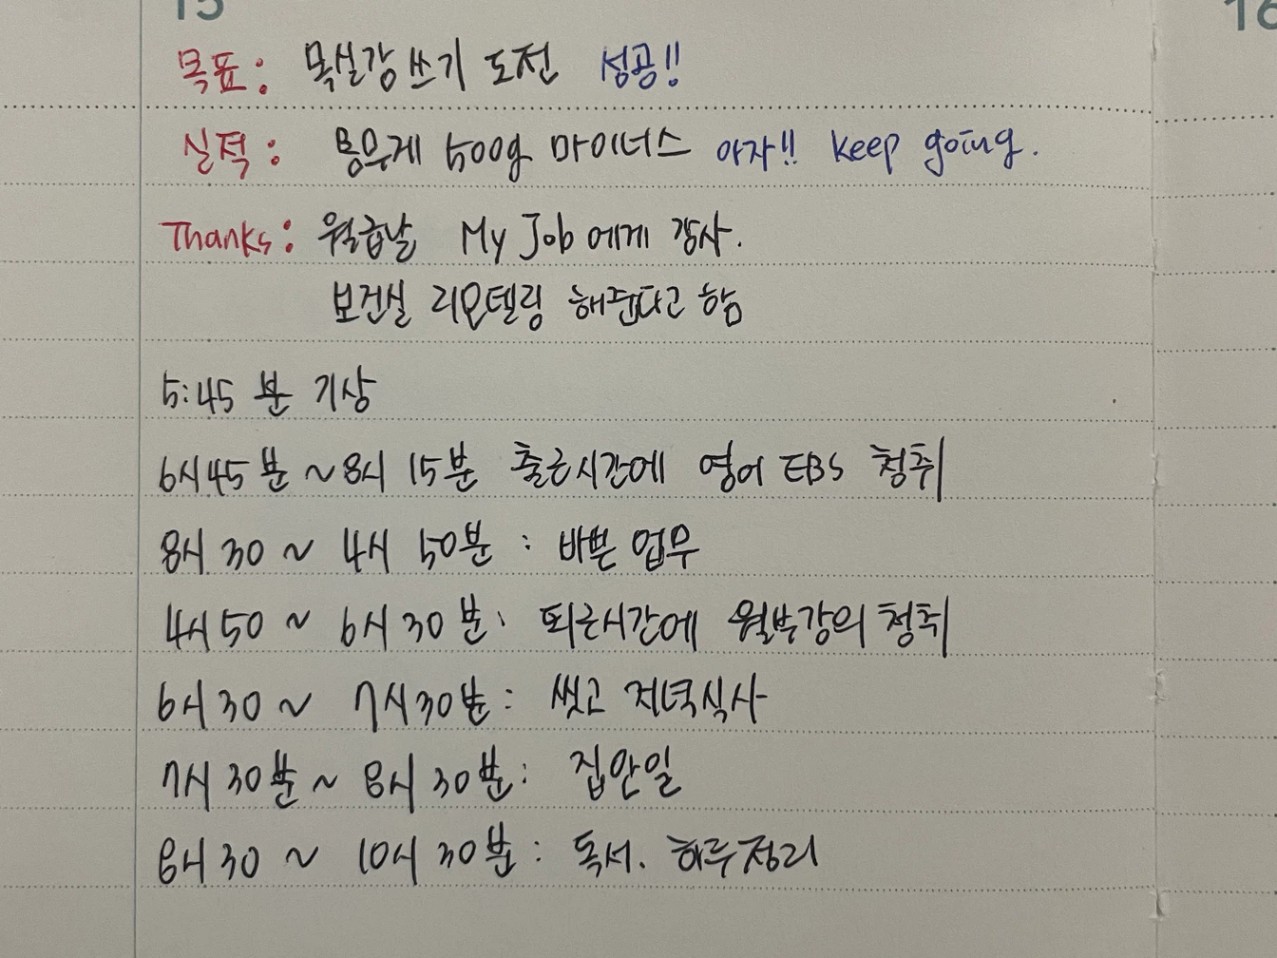 15
16
목표: 목실감 쓰기 도전 성공!!
실적: 몸무게 500g 마이너스 아자!! keep going.
Thanks: 월급날 My Job 에게 감사.
보건실 리모델링 해준다고 함
5:45 분 기상
6시45분 ~ 8시 15분 출근시간에 영어 EBS 청취
8시 30 ~ 4시 50분 : 바쁜 업무
4시 50 ~ 6시 30분: 퇴근시간에 월부강의 청취
6시 30 ~ 7시 30분: 씻고 저녁식사
7시 30분 ~ 8시 30분: 집안일
8시 30 ~ 10시 30분: 독서. 하루정리